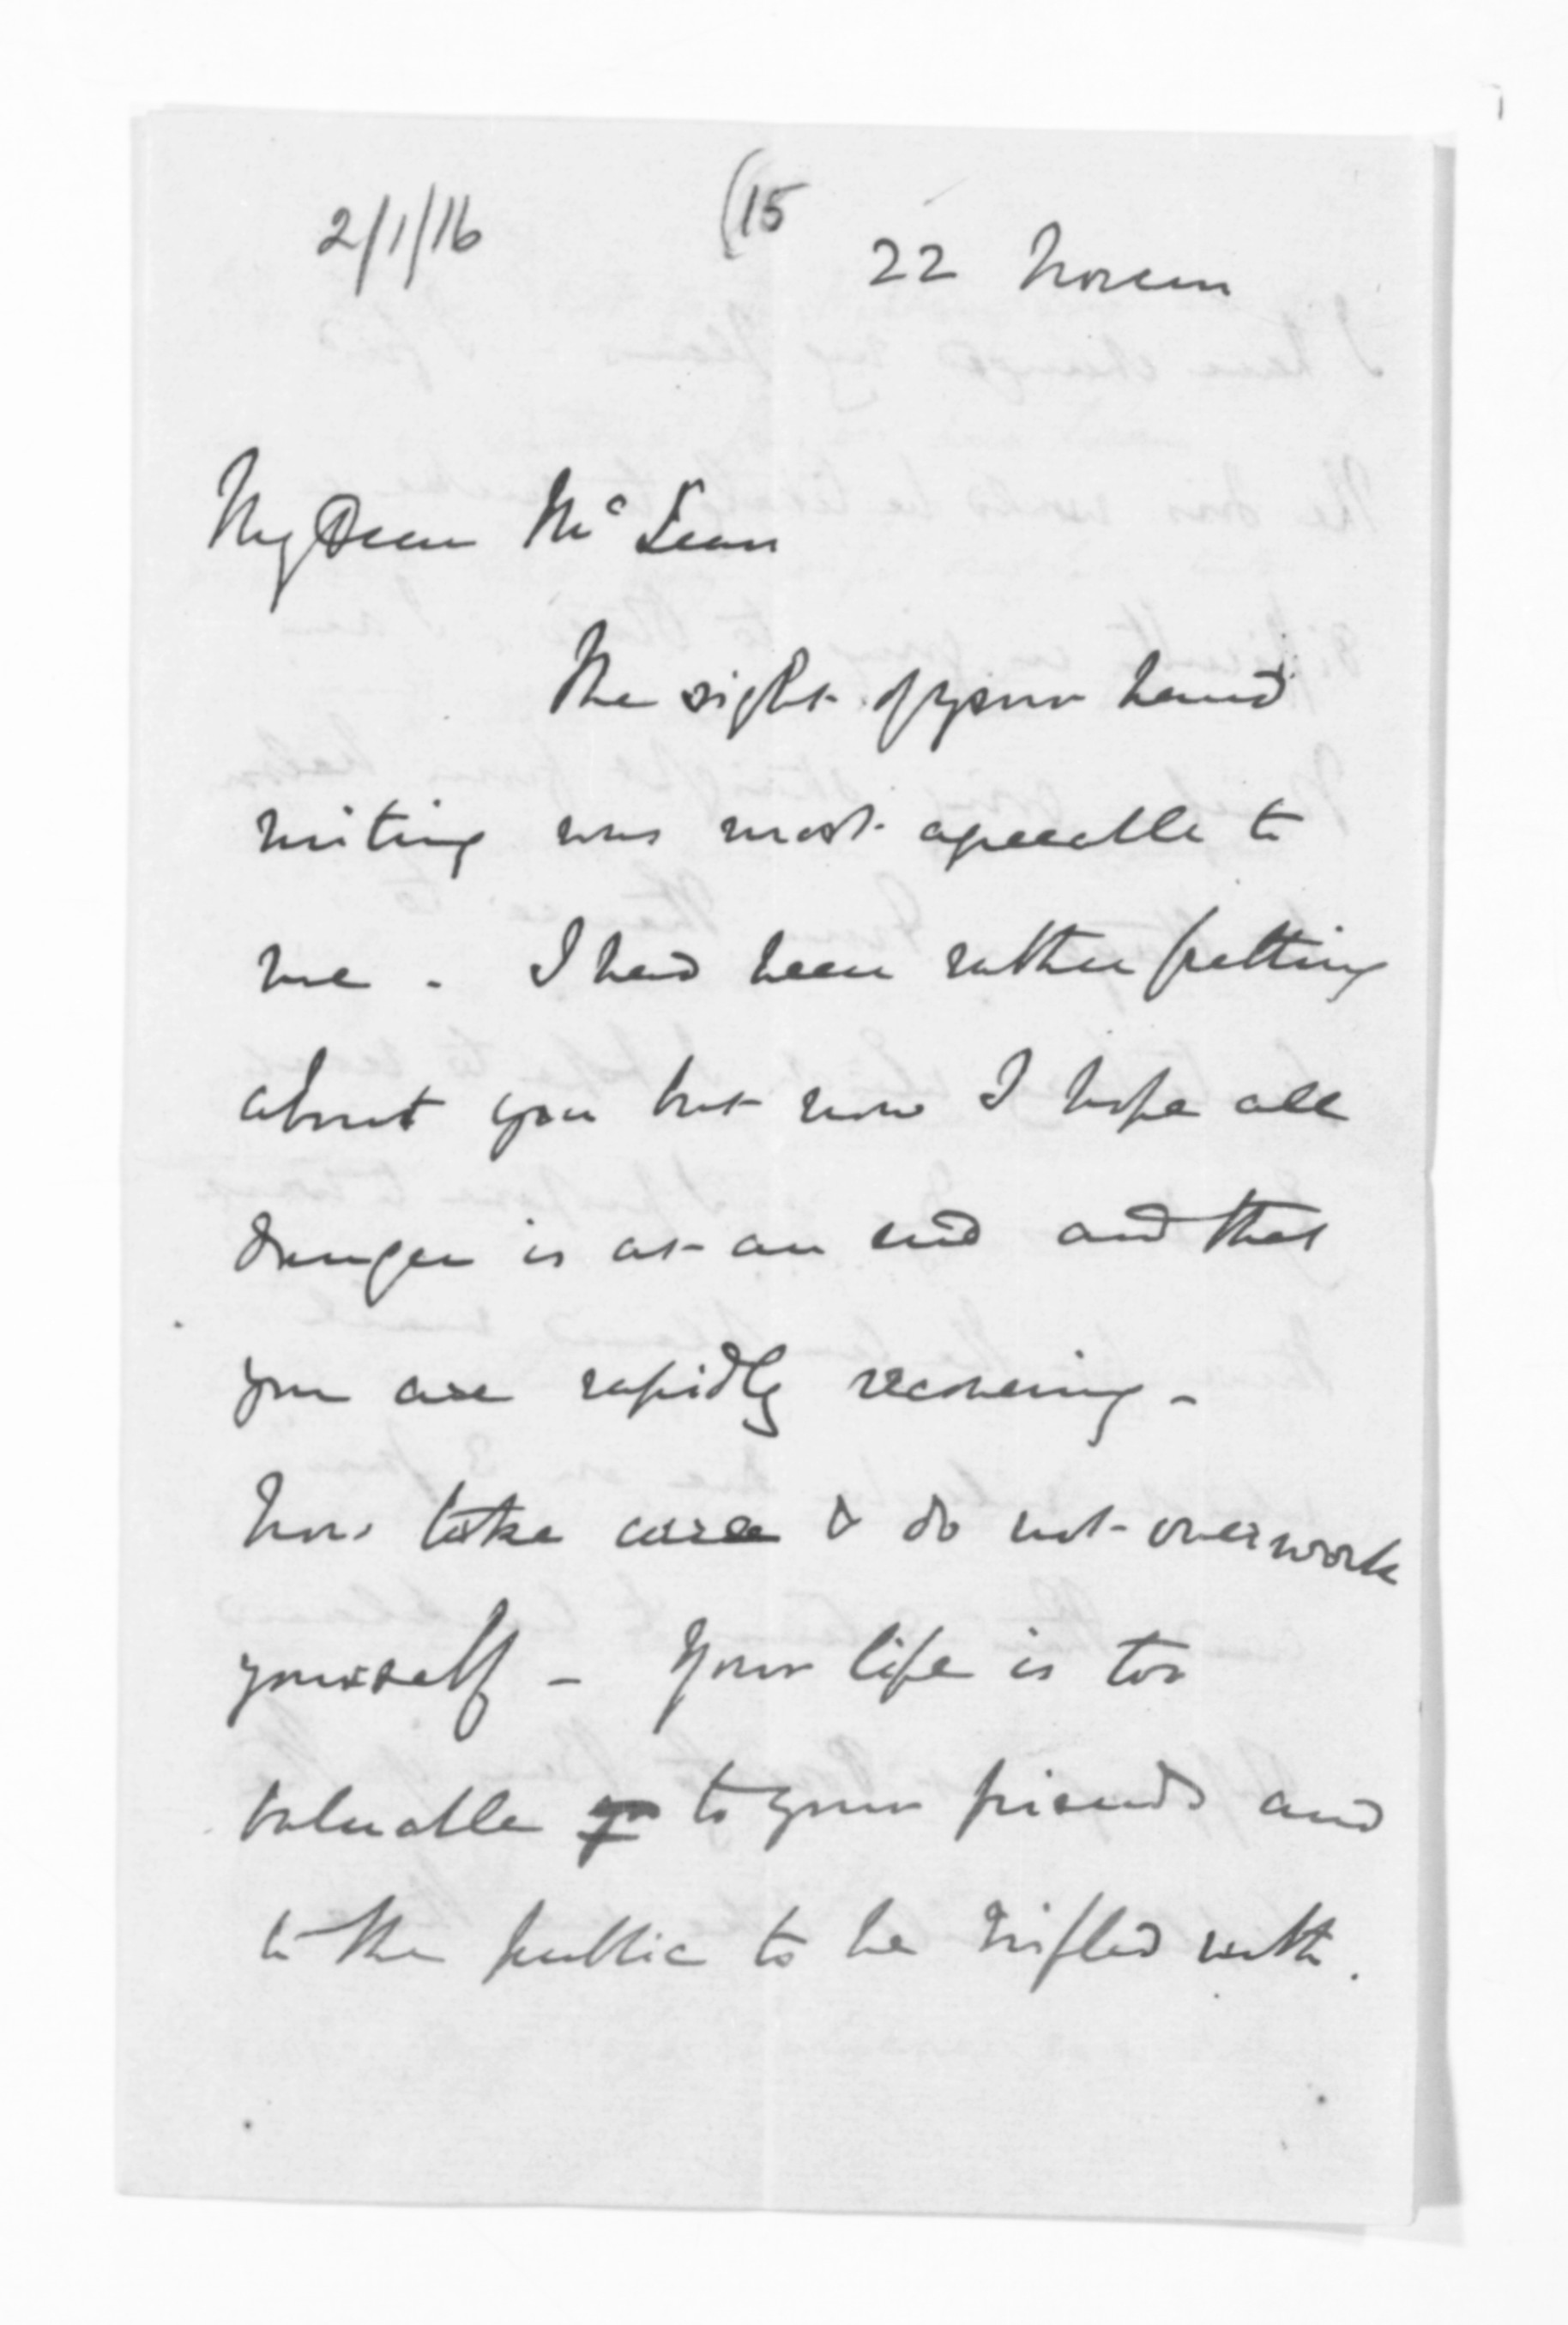 2/1/16 (15
22 Novem
My Dear McLean
The sight of your hand
writing was most agreeable to
me . I had been rather fretting
about you but now I hope all
danger is at an end and that
you are rapidly recovering -
Now take care & do not overwork
yourself - Your life is too
valuable to your friends and
to the public to be trifled with .